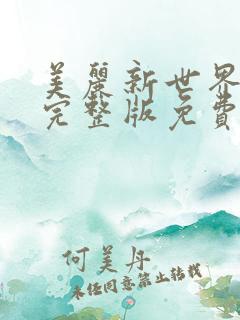 美麗新世界
完整版免費
何美丹
未经同意禁止转载